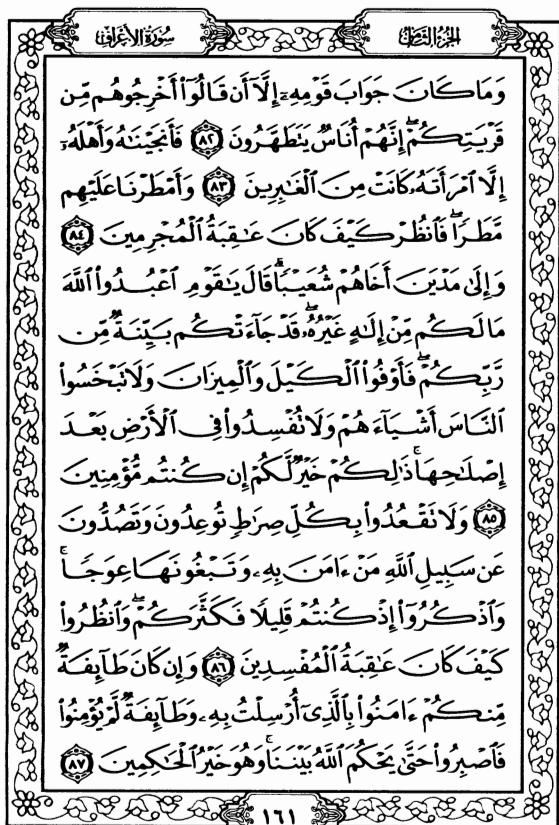 الجزء الثامن
سورة الأعراف
وَمَا كَانَ جَوَابَ قَوْمِهِۦٓ إِلَّآ أَن قَالُوٓا۟ أَخْرِجُوهُم مِّن
قَرْيَتِكُمْ ۖ إِنَّهُمْ أُنَاسٌ يَتَطَهَّرُونَ ٨٢ فَأَنجَيْنَـٰهُ وَأَهْلَهُۥٓ
إِلَّا ٱمْرَأَتَهُۥ كَانَتْ مِنَ ٱلْغَـٰبِرِينَ ٨٣ وَأَمْطَرْنَا عَلَيْهِم
مَّطَرًا ۖ فَٱنظُرْ كَيْفَ كَانَ عَـٰقِبَةُ ٱلْمُجْرِمِينَ ٨٤
وَإِلَىٰ مَدْيَنَ أَخَاهُمْ شُعَيْبًا ۗ قَالَ يَـٰقَوْمِ ٱعْبُدُوا۟ ٱللَّهَ
مَا لَكُم مِّنْ إِلَـٰهٍ غَيْرُهُۥ ۖ قَدْ جَآءَتْكُم بَيِّنَةٌ مِّن
رَّبِّكُمْ ۖ فَأَوْفُوا۟ ٱلْكَيْلَ وَٱلْمِيزَانَ وَلَا تَبْخَسُوا۟
ٱلنَّاسَ أَشْيَآءَهُمْ وَلَا تُفْسِدُوا۟ فِى ٱلْأَرْضِ بَعْدَ
إِصْلَـٰحِهَا ۚ ذَٰلِكُمْ خَيْرٌ لَّكُمْ إِن كُنتُم مُّؤْمِنِينَ
٨٥ وَلَا تَقْعُدُوا۟ بِكُلِّ صِرَٰطٍ تُوعِدُونَ وَتَصُدُّونَ
عَن سَبِيلِ ٱللَّهِ مَنْ ءَامَنَ بِهِۦ وَتَبْغُونَهَا عِوَجًا ۚ
وَٱذْكُرُوٓا۟ إِذْ كُنتُمْ قَلِيلًا فَكَثَّرَكُمْ ۖ وَٱنظُرُوا۟
كَيْفَ كَانَ عَـٰقِبَةُ ٱلْمُفْسِدِينَ ٨٦ وَإِن كَانَ طَآئِفَةٌ
مِّنكُمْ ءَامَنُوا۟ بِٱلَّذِىٓ أُرْسِلْتُ بِهِۦ وَطَآئِفَةٌ لَّمْ يُؤْمِنُوا۟
فَٱصْبِرُوا۟ حَتَّىٰ يَحْكُمَ ٱللَّهُ بَيْنَنَا ۚ وَهُوَ خَيْرُ ٱلْحَـٰكِمِينَ ٨٧
١٦١